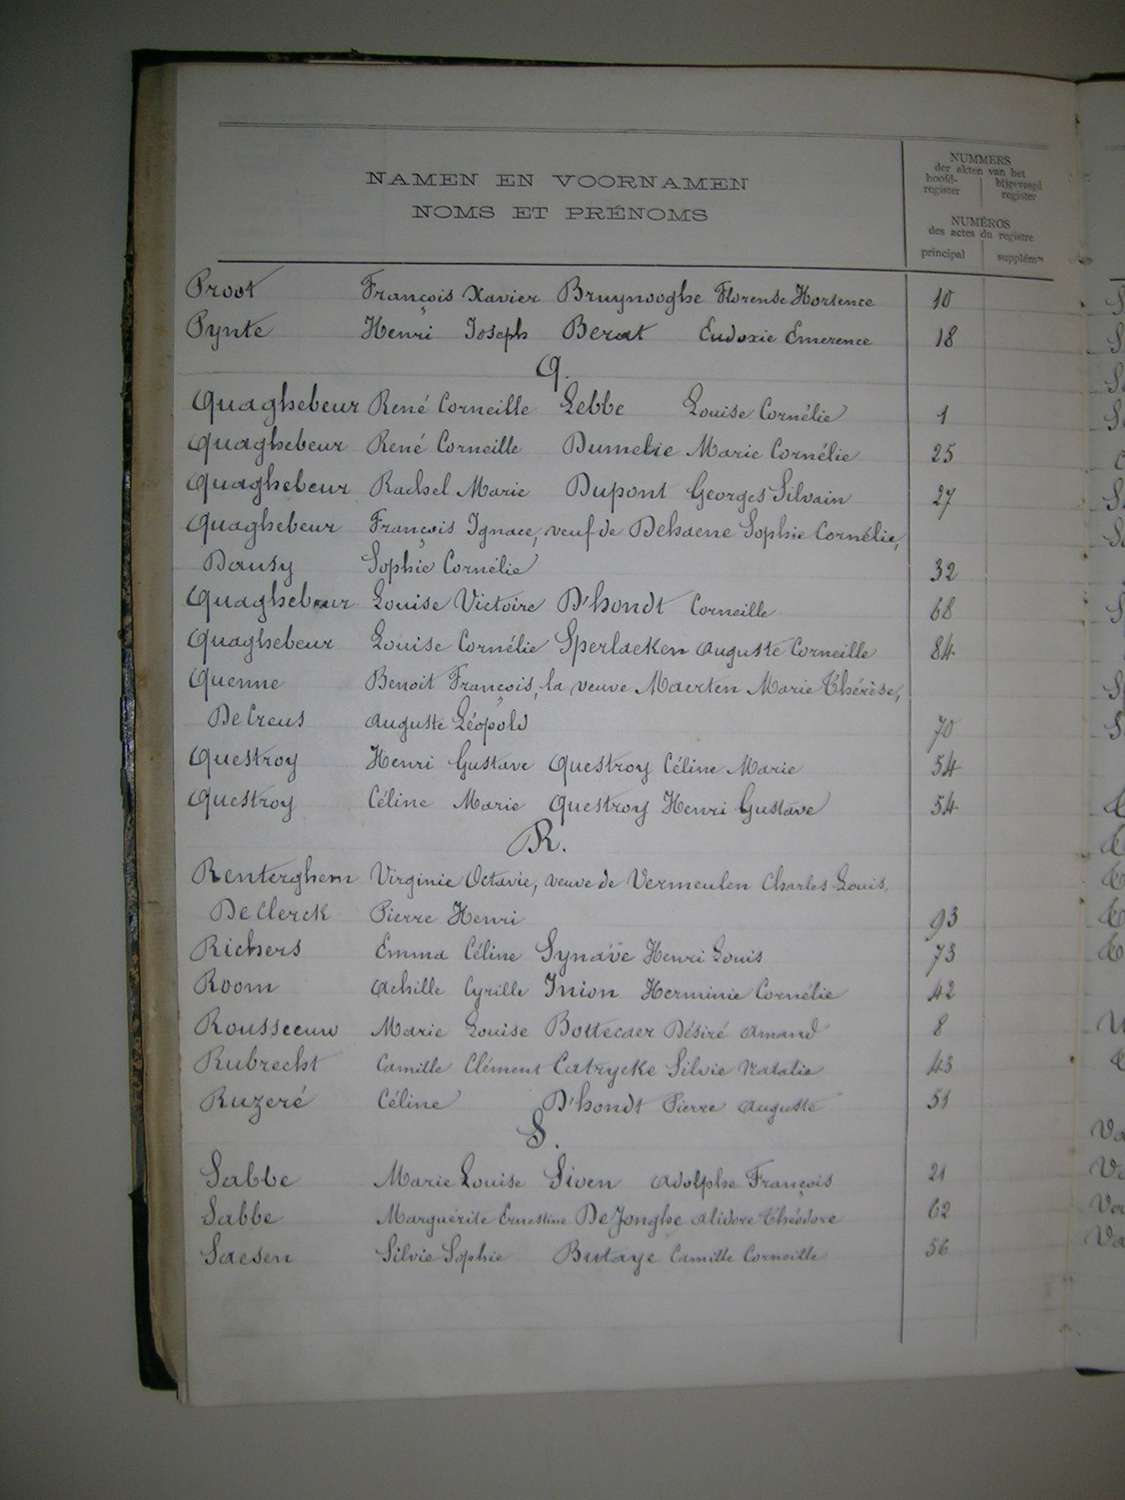 NAMEN EN VOORNAMEN
NOMS ET PRÉNOMS
NUMMERS
der akten van het
hoofd- register bijgevoegd register
NUMÉROS
des actes du registre
principal supplém^re
Proot François Xavier Bruynooghe Florense Hortence 10
Pynte Henri Joseph Berat Eudoxie Emerence 18
Q.
Quaghebeur René Corneille Lebbe Louise Cornélie 1
Quaghebeur René Corneille Dumelie Marie Cornélie 25
Quaghebeur Rachel Marie Dupont Georges Silvain 27
Quaghebeur François Ignace, veuf de Dehaene Sophie Cornélie,
Dausy Sophie Cornélie 32
Quaghebeur Louise Victoire D'hondt Corneille 68
Quaghebeur Louise Cornélie Sperlaeken Auguste Corneille 84
Quenne Benoit François, la veuve Maerten Marie Thérèse,
DeCreus Auguste Léopold 70
Questroy Henri Gustave Questroy Céline Marie 54
Questroy Céline Marie Questroy Henri Gustave 54
R.
Renterghem Virginie Octavie, veuve de Vermeulen Charles Louis,
DeClerck Pierre Henri 93
Richers Emma Céline Synave Henri Louis 73
Room Achille Cyrille Inion Herminie Cornélie 42
Rousseeuw Marie Louise Bottecaer Désiré Amand 8
Rubrecht Camille Clément Catrycke Silvie Natalie 43
Ruzeré Céline D'hondt Pierre Auguste 51
S.
Sabbe Marie Louise Siven Adolphe François 21
Sabbe Marguérite Ernestine DeJonghe Alidore Théodore 62
Saesen Silvie Sophie Butaye Camille Corneille 56